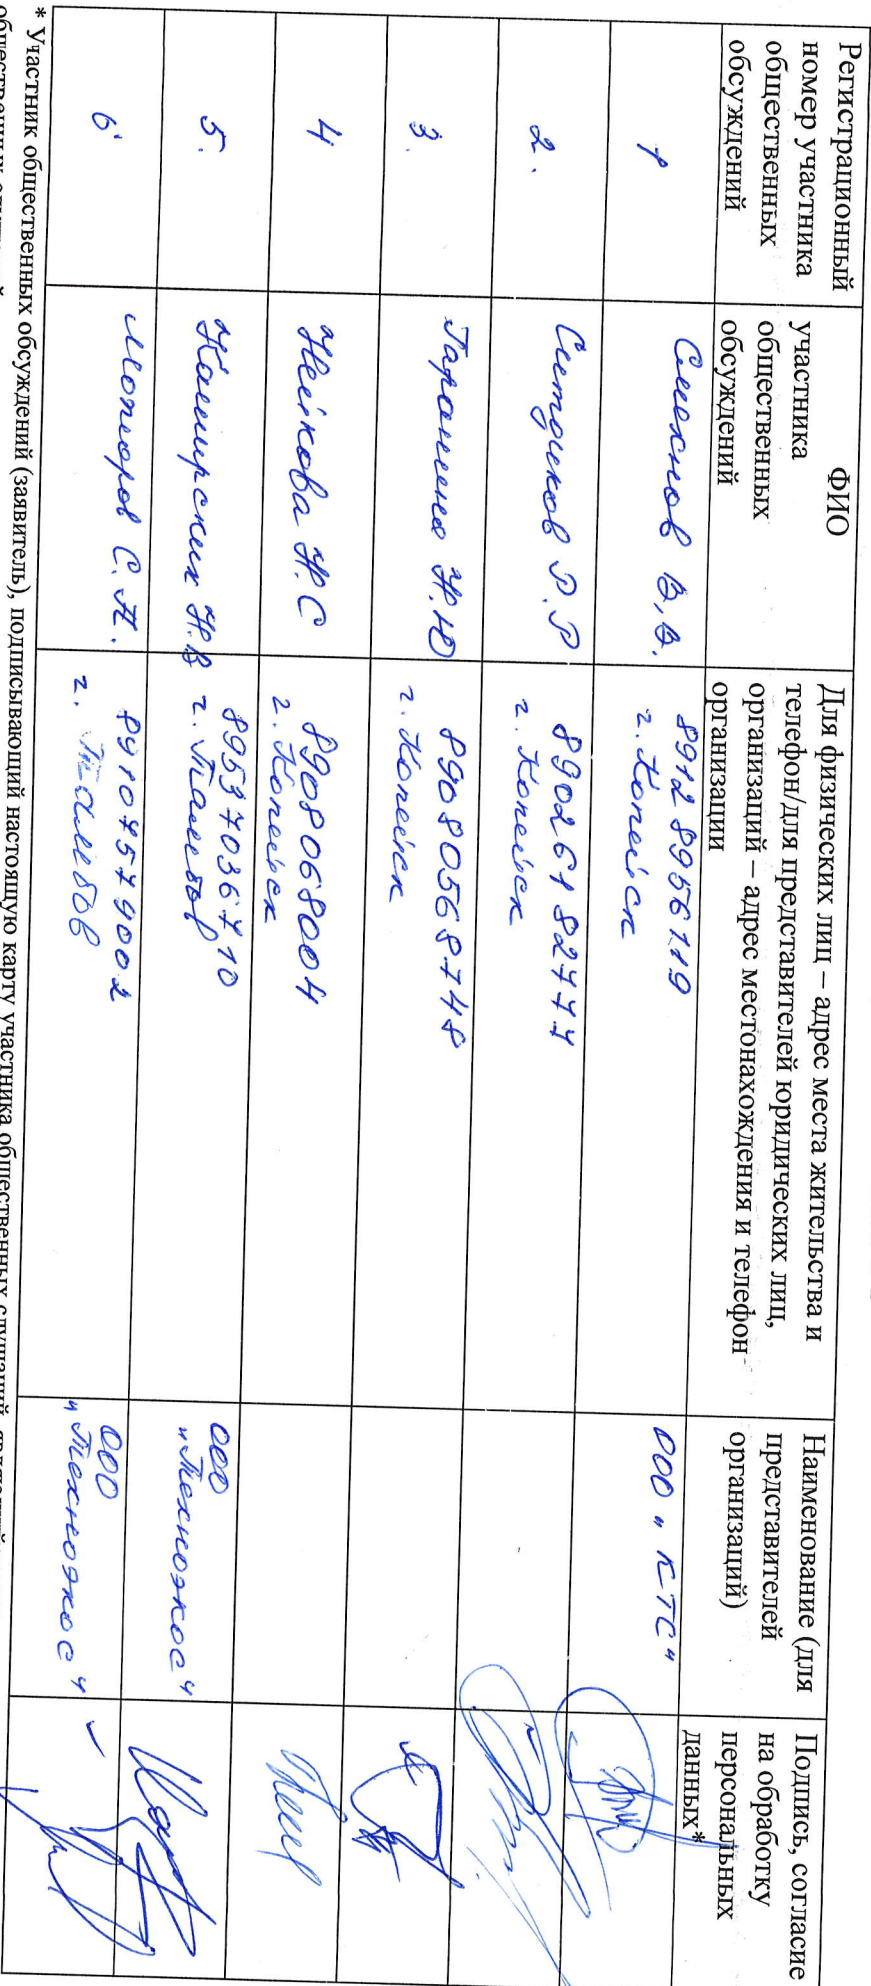 Регистрационный
номер участника
общественных
обсуждений
ФИО
участника
общественных
обсуждений
Для физических лиц – адрес места жительства и
телефон/для представителей юридических лиц,
организаций – адрес местонахождения и телефон
организации
Наименование (для
представителей
организаций)
Подпись, согласие
на обработку
персональных
данных*
1
Смехнов В.В.
8912 8956119
г. Копейск
ООО "КТС"
2.
Ситдиков Р.Р
г. Копейск
3.
Гаранина Н.Ю
89080568748
г. Копейск
4
Нейкова Н.С
8908068004
г. Копейск
5.
Каширских Н.В
89537036710
г. Тамбов
ООО
"Техноэкос"
6
С.А.
89107579002
г. Тамбов
ООО
"Техноэкос"
* Участник общественных обсуждений (заявитель), подписывающий настоящую карту участника общественных слушаний